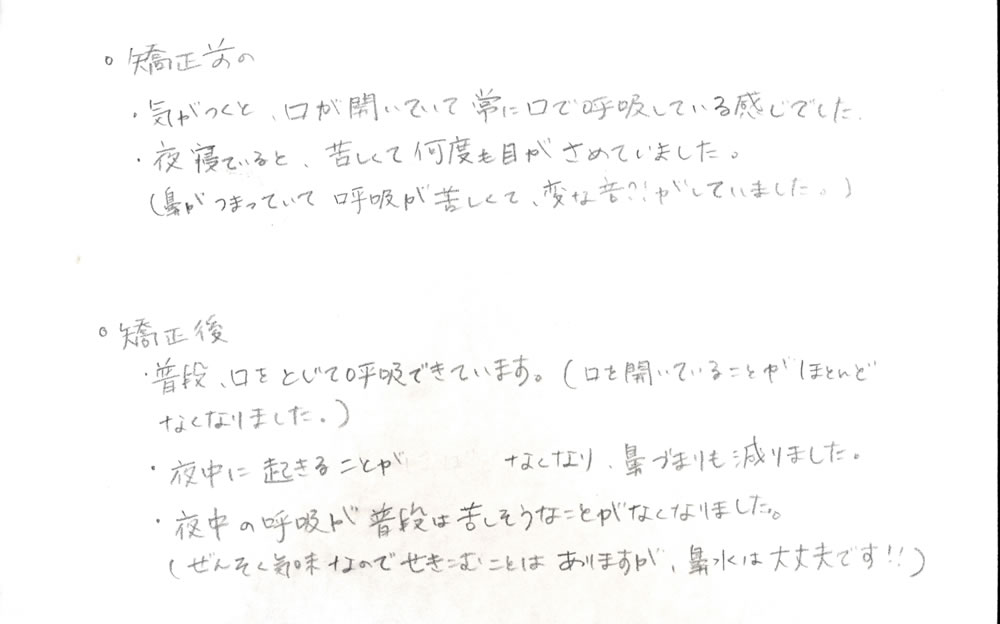 ○ 矯正前の
・気がつくと、口が開いていて常に口で呼吸している感じでした.
・夜寝ていると、苦しくて何度も目がさめていました。
(鼻がつまっていて呼吸が苦しくて、変な音?!がしていました。)
○ 矯正後
・普段、口をとじて呼吸できています。(口を開いていることがほとんど
なくなりました.)
・夜中に起きることが なくなり、鼻づまりも減りました。
・夜中の呼吸が普段は苦しそうなことがなくなりました。
(ぜんそく気味なのでせきこむことはありますが、鼻水は大丈夫です!!)